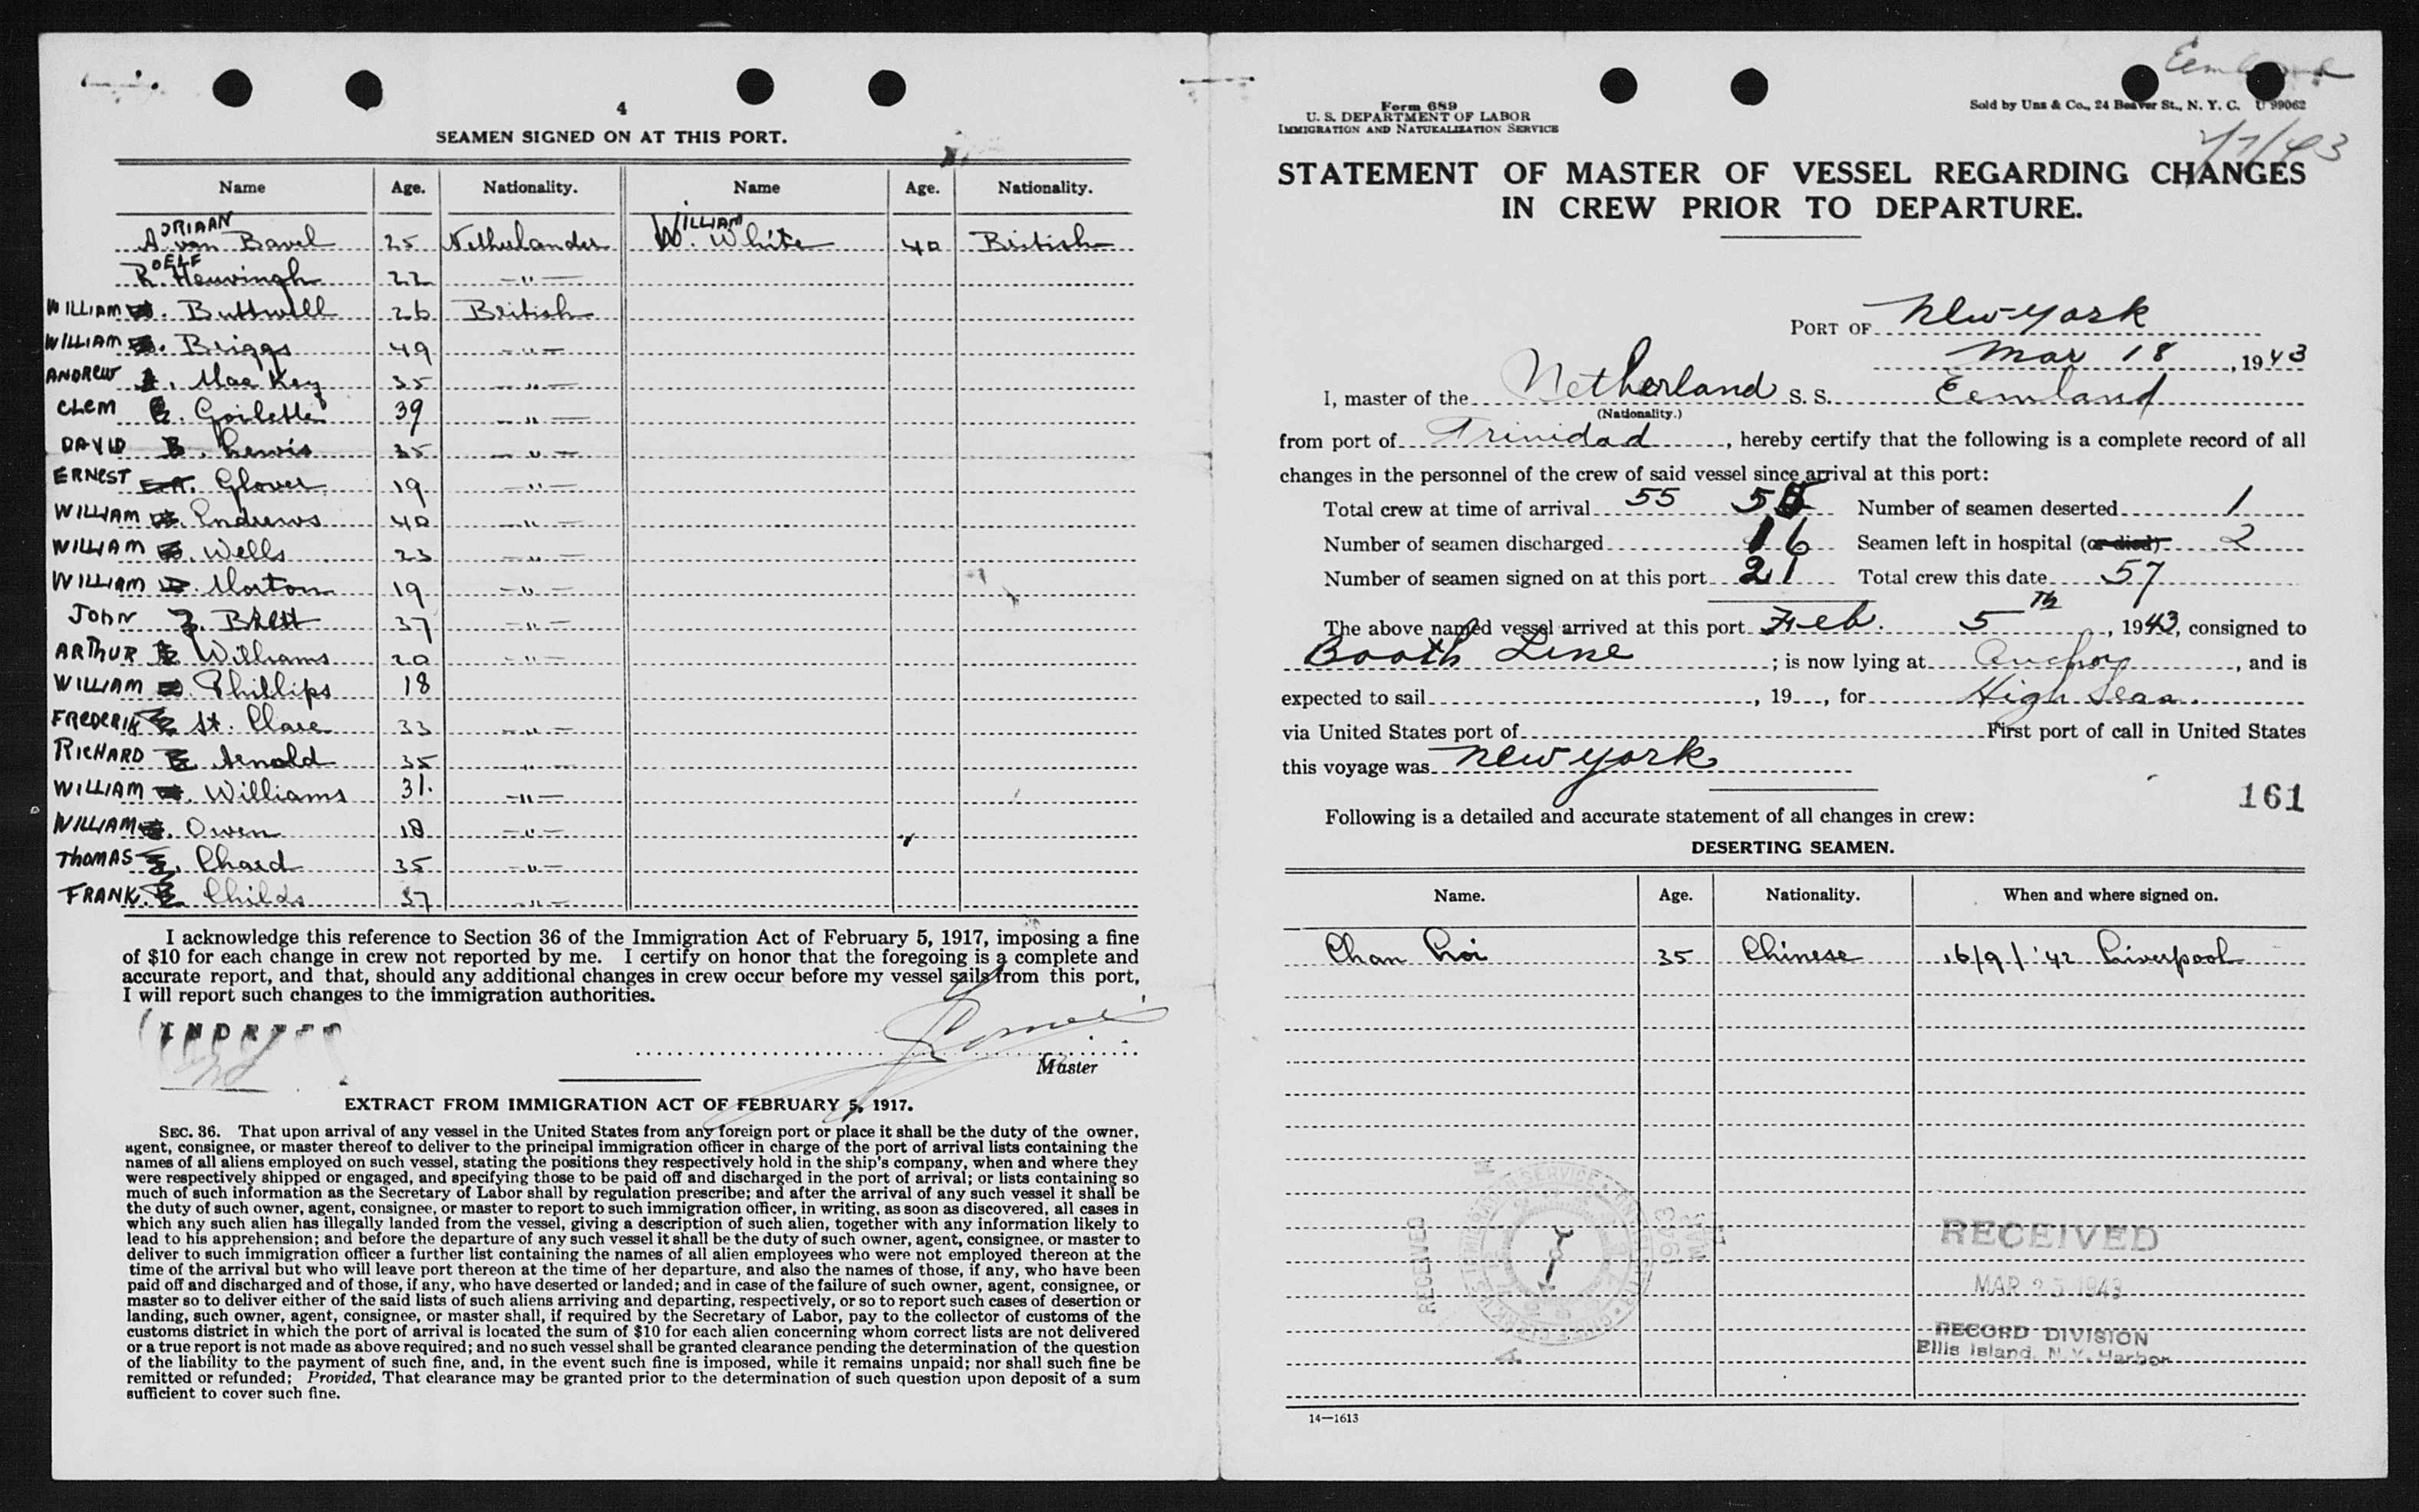 4
SEAMEN SIGNED ON AT THIS PORT.
Name Age. Nationality. Name Age. Nationality.
ADRIAAN van Bavel 25 Netherlander WILLIAM W. White 40 British
ROELF Heuvingh 22 —"—
WILLIAM Buttwell 26 British
WILLIAM Briggs 49 —"—
ANDREW A. MacKey 35 —"—
CLEM Goilette 39 —"—
DAVID Lewis 35 —"—
ERNEST Glover 19 —"—
WILLIAM Andrews 40 —"—
WILLIAM Wells 23 —"—
WILLIAM Morton 19 —"—
JOHN J. Brett 37 —"—
ARTHUR Williams 20 —"—
WILLIAM Phillips 18
FREDERIK St. Clare 33 —"—
RICHARD Arnold 35 —"—
WILLIAM Williams 31. —"—
WILLIAM Owen 18 —"—
THOMAS Chard 35 —"—
FRANK. Childs 37 —"—
I acknowledge this reference to Section 36 of the Immigration Act of February 5, 1917, imposing a fine
of $10 for each change in crew not reported by me. I certify on honor that the foregoing is a complete and
accurate report, and that, should any additional changes in crew occur before my vessel sails from this port,
I will report such changes to the immigration authorities.
INDEXED
Master
EXTRACT FROM IMMIGRATION ACT OF FEBRUARY 5, 1917.
SEC. 36. That upon arrival of any vessel in the United States from any foreign port or place it shall be the duty of the owner,
agent, consignee, or master thereof to deliver to the principal immigration officer in charge of the port of arrival lists containing the
names of all aliens employed on such vessel, stating the positions they respectively hold in the ship's company, when and where they
were respectively shipped or engaged, and specifying those to be paid off and discharged in the port of arrival; or lists containing so
much of such information as the Secretary of Labor shall by regulation prescribe; and after the arrival of any such vessel it shall be
the duty of such owner, agent, consignee, or master to report to such immigration officer, in writing, as soon as discovered, all cases in
which any such alien has illegally landed from the vessel, giving a description of such alien, together with any information likely to
lead to his apprehension; and before the departure of any such vessel it shall be the duty of such owner, agent, consignee, or master to
deliver to such immigration officer a further list containing the names of all alien employees who were not employed thereon at the
time of the arrival but who will leave port thereon at the time of her departure, and also the names of those, if any, who have been
paid off and discharged and of those, if any, who have deserted or landed; and in case of the failure of such owner, agent, consignee, or
master so to deliver either of the said lists of such aliens arriving and departing, respectively, or so to report such cases of desertion or
landing, such owner, agent, consignee, or master shall, if required by the Secretary of Labor, pay to the collector of customs of the
customs district in which the port of arrival is located the sum of $10 for each alien concerning whom correct lists are not delivered
or a true report is not made as above required; and no such vessel shall be granted clearance pending the determination of the question
of the liability to the payment of such fine, and, in the event such fine is imposed, while it remains unpaid; nor shall such fine be
remitted or refunded; Provided, That clearance may be granted prior to the determination of such question upon deposit of a sum
sufficient to cover such fine.
Form 689
U. S. DEPARTMENT OF LABOR
IMMIGRATION AND NATURALIZATION SERVICE
Sold by Unz & Co., 24 Beaver St., N. Y. C. U 99062
STATEMENT OF MASTER OF VESSEL REGARDING CHANGES
IN CREW PRIOR TO DEPARTURE.
PORT OF New York
Mar 18, 1943
I, master of the Netherland S. S. Eemland
(Nationality.)
from port of Trinidad, hereby certify that the following is a complete record of all
changes in the personnel of the crew of said vessel since arrival at this port:
Total crew at time of arrival 55 55 Number of seamen deserted 1
Number of seamen discharged 16 Seamen left in hospital (or died) 2
Number of seamen signed on at this port 21 Total crew this date 57
The above named vessel arrived at this port Feb. 5th, 1943, consigned to
Booth Line; is now lying at Anchor, and is
expected to sail, 19, for High Seas.
via United States port of First port of call in United States
this voyage was New York
161
Following is a detailed and accurate statement of all changes in crew:
DESERTING SEAMEN.
Name. Age. Nationality. When and where signed on.
Chan Loi 35 Chinese 16/9/'42 Liverpool
RECEIVED
1943
RECEIVED
MAR 1943
RECORD DIVISION
Ellis Island, N.Y. Harbor
14—1613